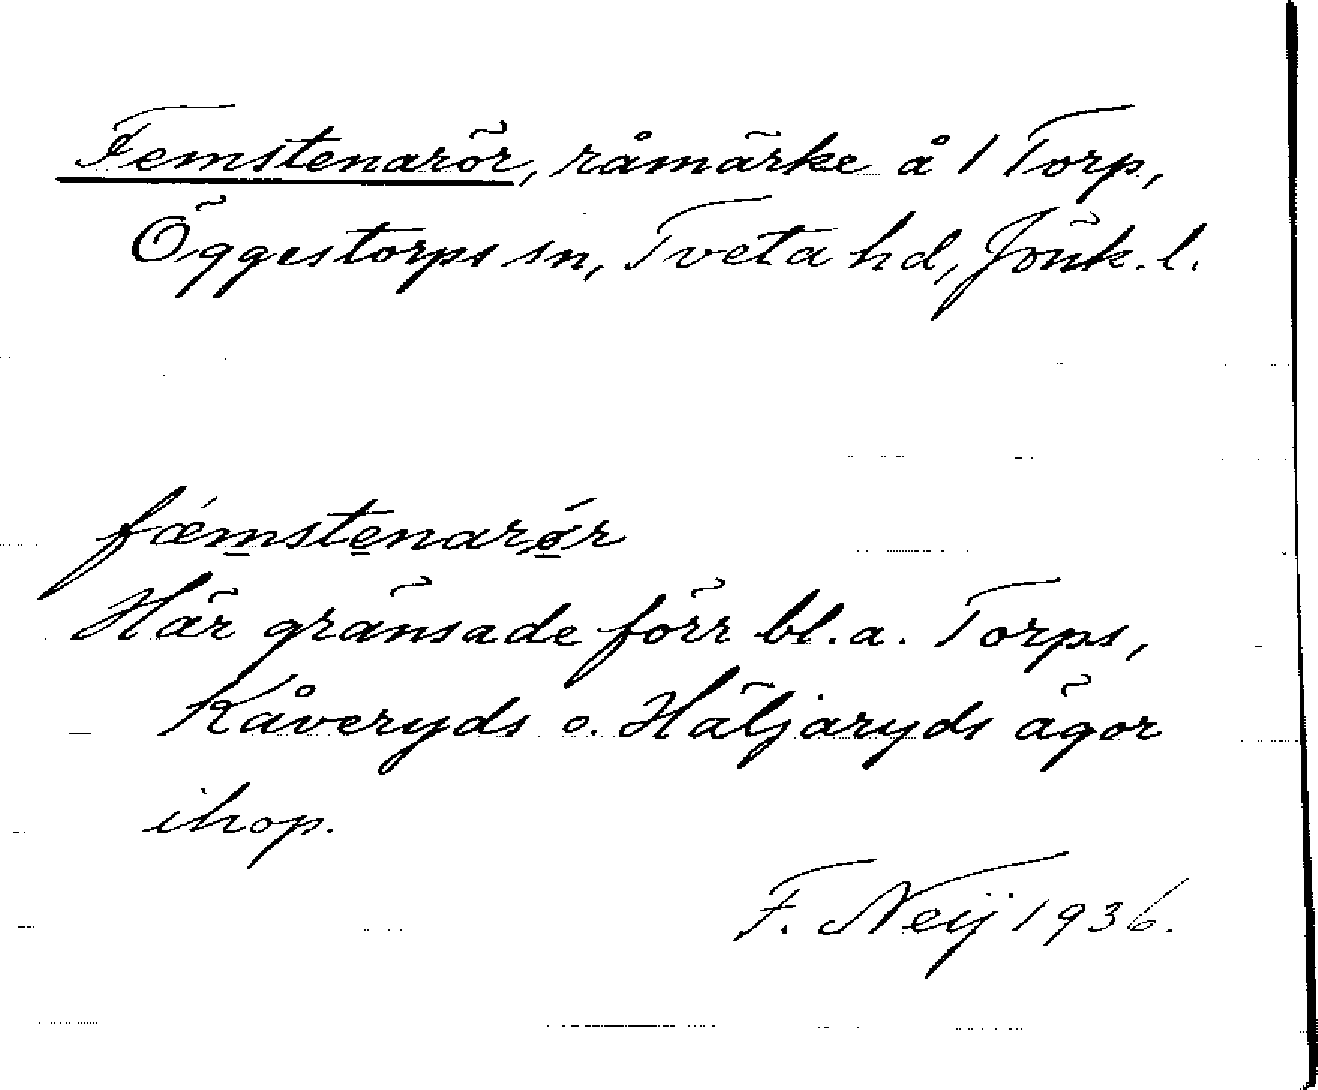 Femstenarör, råmärke å 1 Torp,
Öggestorps sn, Tveta hd, Jönk. l.
fæ´mstenarǿr
Här gränsade förr bl. a. Torps,
Kåveryds o. Häljaryds ägor
ihop.
F. Neij 1936.